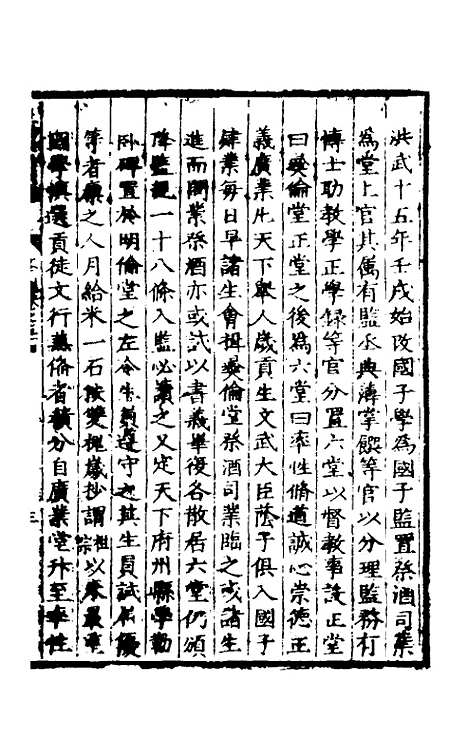 洪武十五年壬戌始改國子學為國子監置祭酒司業
為堂上官其属有監丞典簿掌饌等官以分理監務有
博士助教學正學録等官分置六堂以督教事設正堂
曰彛倫堂正堂之後為六堂曰率性脩道誠心崇德正
義廣業凡天下舉人歲貢生文武大臣蔭子俱入國子
肄業每日早諸生會揖彛倫堂祭酒司業臨之或諸生
進而問業祭酒亦或試以書義畢復各散居六堂仍頒
降監規一十八條入監必讀之又定天下府州縣學勒
卧碑置於明倫堂之左令生員遵守之其生員試居優
等者廩之人月給米一石按雙槐歲抄謂祖宗以來最重
國學慎選貢徒文行兼備者積分自廣業堂升至率性